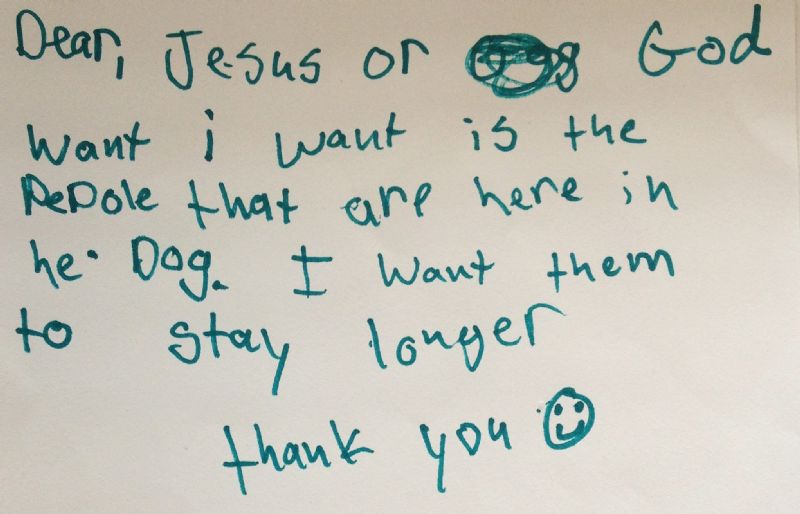 Dear, Jesus or God
Want i want is the
PePole that are here in
he. Dog. I want them
to stay longer
thank you